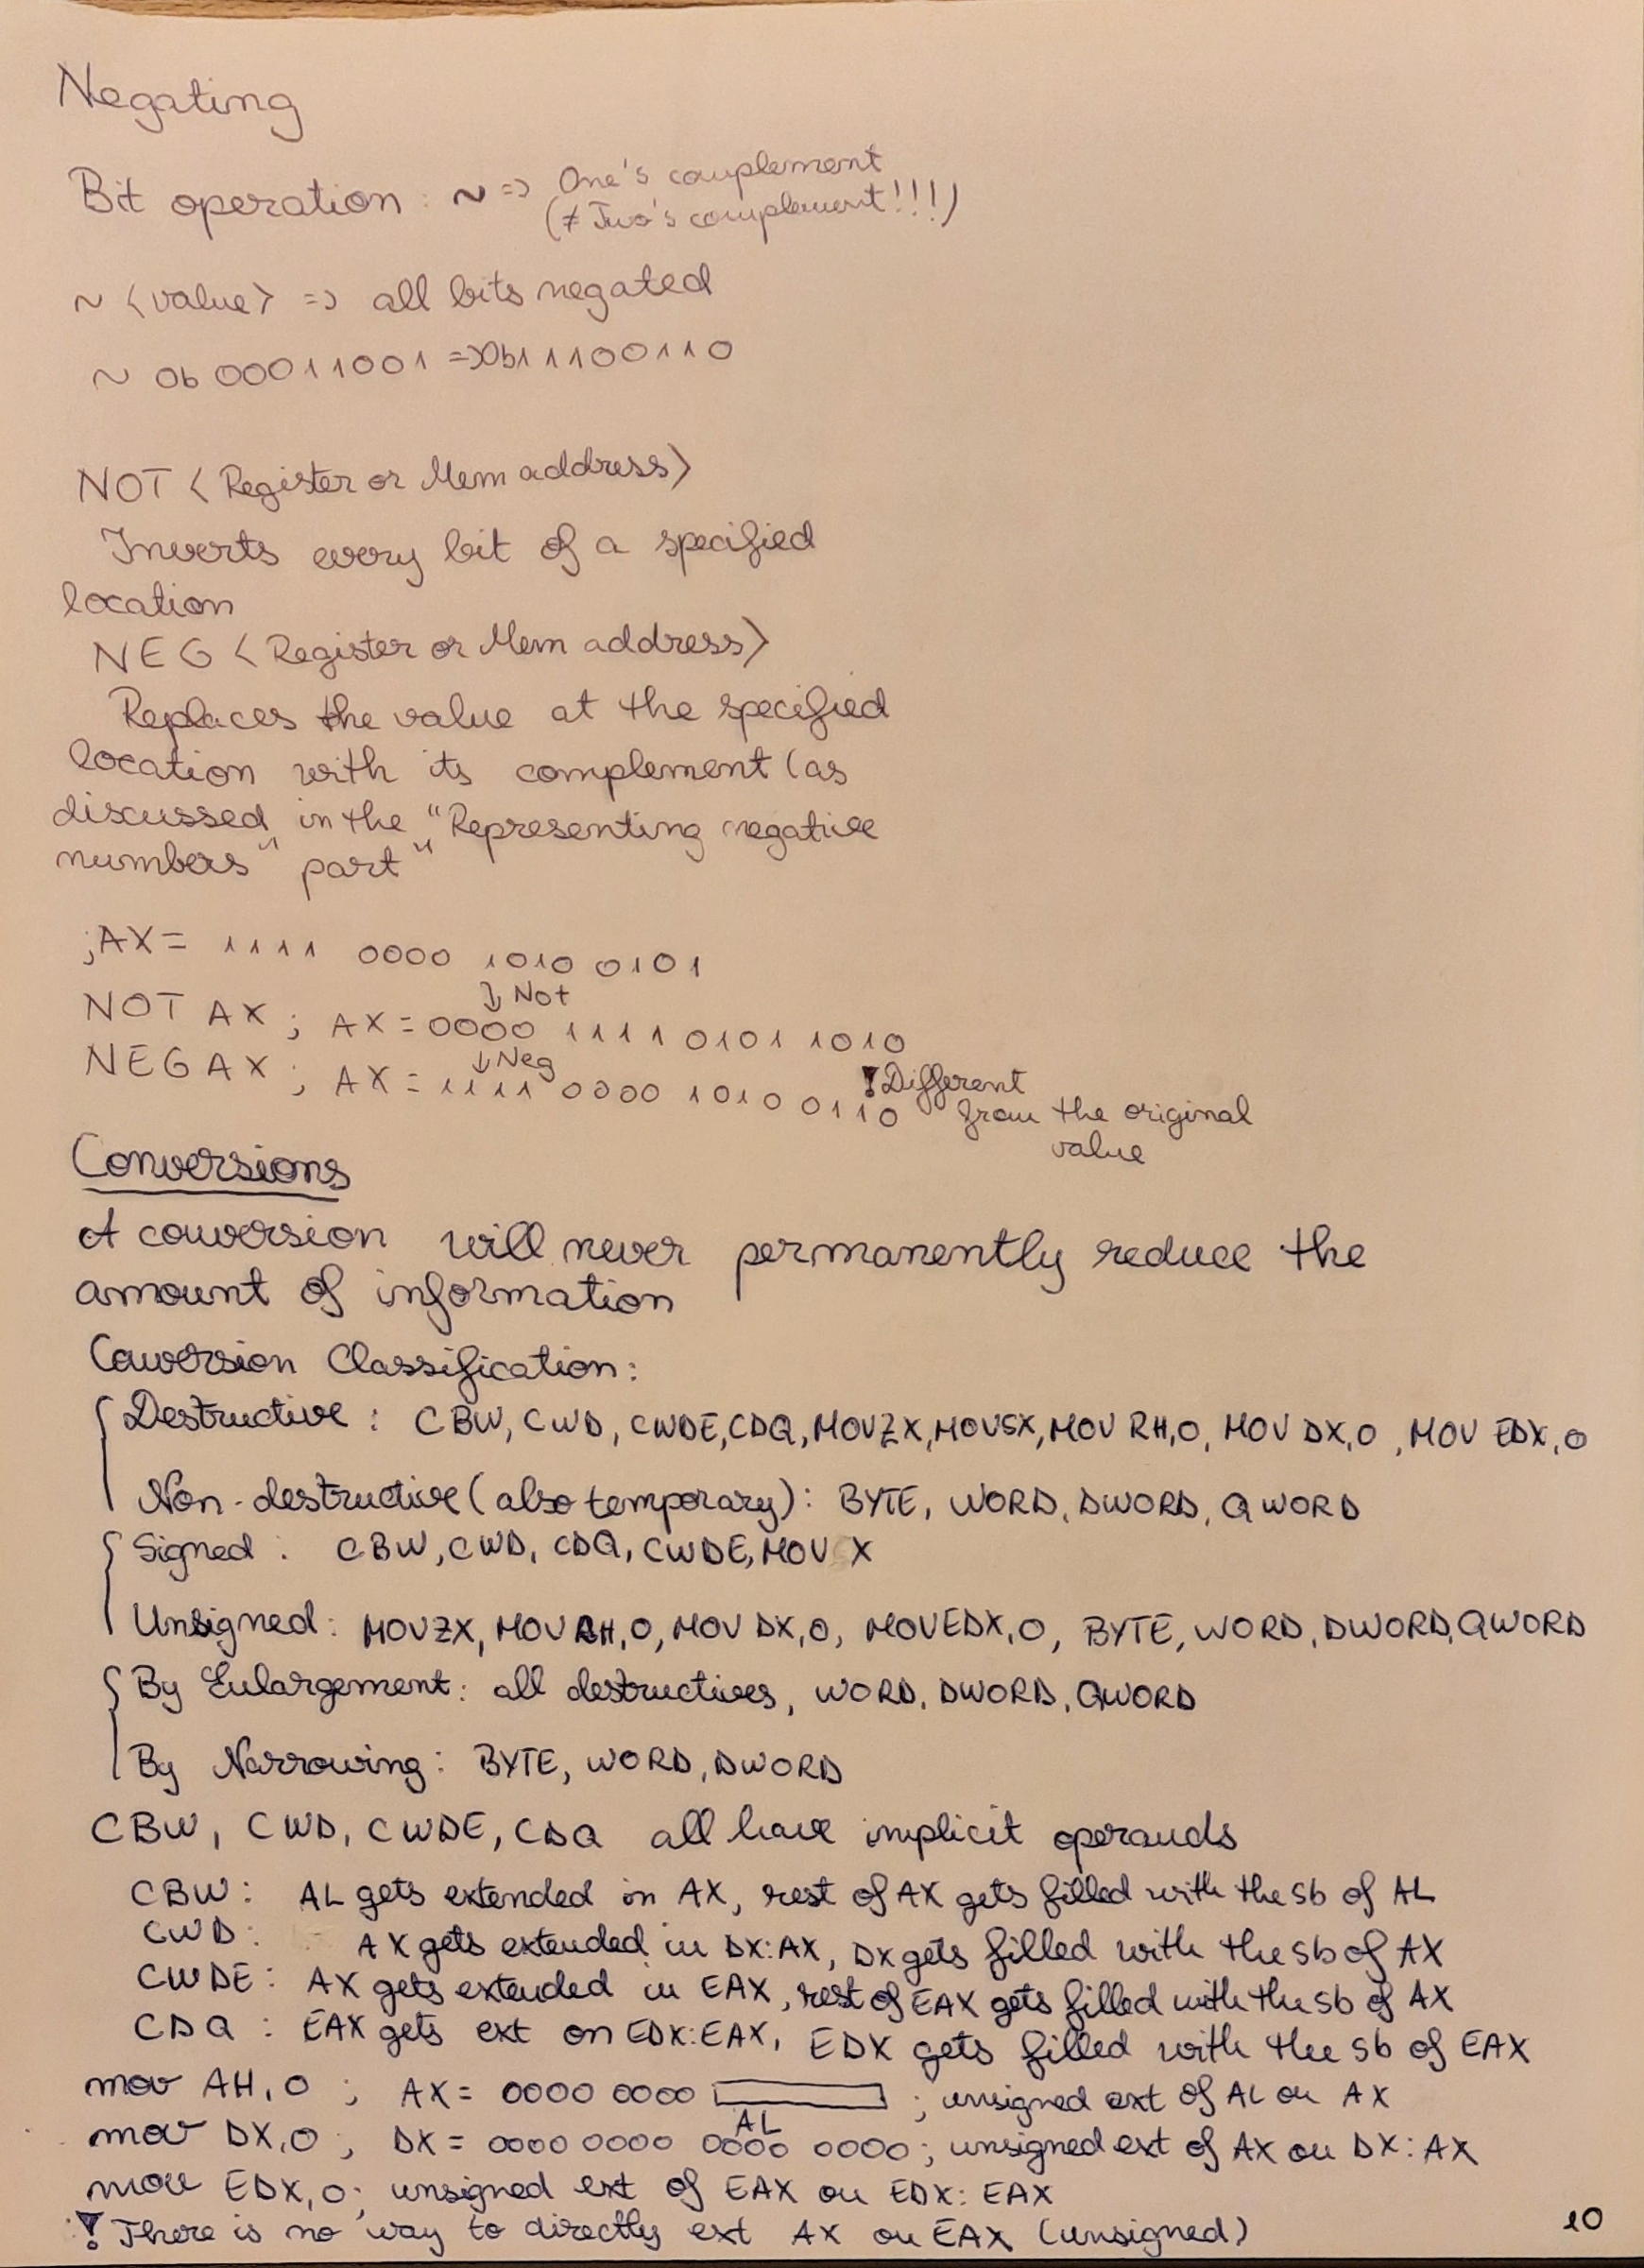 Negating
Bit operation : ~ => One's complement
(≠ Two's complement!!!)
~ <value> => all bits negated
~ 0b 00011001 => 0b11100110
NOT <Register or Mem address>
Inverts every bit of a specified
location
NEG <Register or Mem address>
Replaces the value at the specified
location with its complement (as
discussed in the "Representing negative
numbers" part"
;AX = 1111 0000 1010 0101
↓ Not
NOT AX ; AX = 0000 1111 0101 1010
↓ Neg
NEG AX ; AX = 1111 0000 1010 0110 ! Different
from the original
value
Conversions
A conversion will never permanently reduce the
amount of information
Conversion Classification:
Destructive : CBW, CWD, CWDE, CDQ, MOVZX, MOVSX, MOV RH,0, MOV DX,0 , MOV EDX,0
Non-destructive (also temporary): BYTE, WORD, DWORD, QWORD
Signed : CBW, CWD, CDQ, CWDE, MOV X
Unsigned: MOVZX, MOV RH,0, MOV DX,0, MOV EDX,0, BYTE, WORD, DWORD, QWORD
By Enlargement: all destructives, WORD, DWORD, QWORD
By Narrowing: BYTE, WORD, DWORD
CBW, CWD, CWDE, CDQ all have implicit operands
CBW: AL gets extended in AX, rest of AX gets filled with the sb of AL
CWD: AX gets extended in DX:AX, DX gets filled with the sb of AX
CWDE: AX gets extended in EAX, rest of EAX gets filled with the sb of AX
CDQ : EAX gets ext on EDX:EAX, EDX gets filled with the sb of EAX
mov AH,0 ; AX = 0000 0000 ; unsigned ext of AL on AX
AL
mov DX,0 ; DX = 0000 0000 0000 0000 ; unsigned ext of AX on DX:AX
mov EDX,0; unsigned ext of EAX on EDX:EAX
! There is no way to directly ext AX on EAX (unsigned)
10